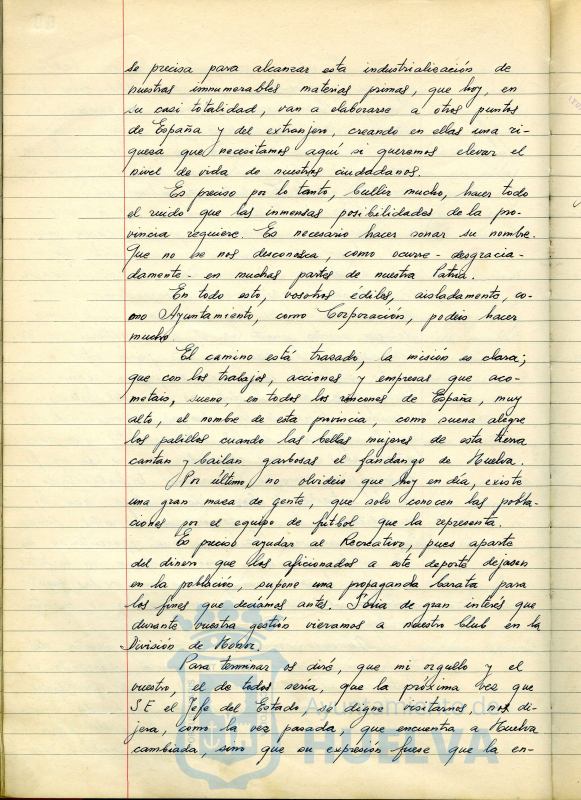 se precisa para alcanzar esta industrialización de
nuestras innumerables materias primas, que hoy, en
su casi totalidad, van a elaborarse a otros puntos
de España y del extranjero, creando en ellas una ri-
queza que necesitamos aquí si queremos elevar el
nivel de vida de nuestros ciudadanos.
Es preciso por lo tanto, bullir mucho, hacer todo
el ruido que las inmensas posibilidades de la pro-
vincia requiere. Es necesario hacer sonar su nombre.
Que no se nos desconozca, como ocurre - desgracia-
damente - en muchas partes de nuestra Patria.
En todo esto, vosotros ediles, aisladamente, co-
mo Ayuntamiento, como Corporación, podeis hacer
mucho
El camino está trazado, la misión es clara;
que con los trabajos, acciones y empresas que aco-
metais, suene, en todos los rincones de España, muy
alto, el nombre de esta provincia, como suena alegre
los palillos cuando las bellas mujeres de esta tierra
cantan y bailan garbosas el fandango de Huelva.
Por último, no olvideis que hoy en día, existe
una gran masa de gente, que solo conocen las pobla-
ciones por el equipo de fútbol que la representa.
Es preciso ayudar al Recreativo, pues aparte
del dinero que los aficionados a este deporte dejasen
en la población, supone una propaganda barata para
los fines que deciamos antes. Sería de gran interés que
durante vuestra gestión vieramos a nuestro Club en la
División de Honor.
Para terminar os diré, que mi orgullo y el
vuestro, el de todos sería, que la próxima vez que
S E el Jefe del Estado, se digne visitarnos, nos di-
jera, como la vez pasada, que encuentra a Huelva
cambiada, sino que su expresión fuese que la en-
Ayuntamiento de
HUELVA